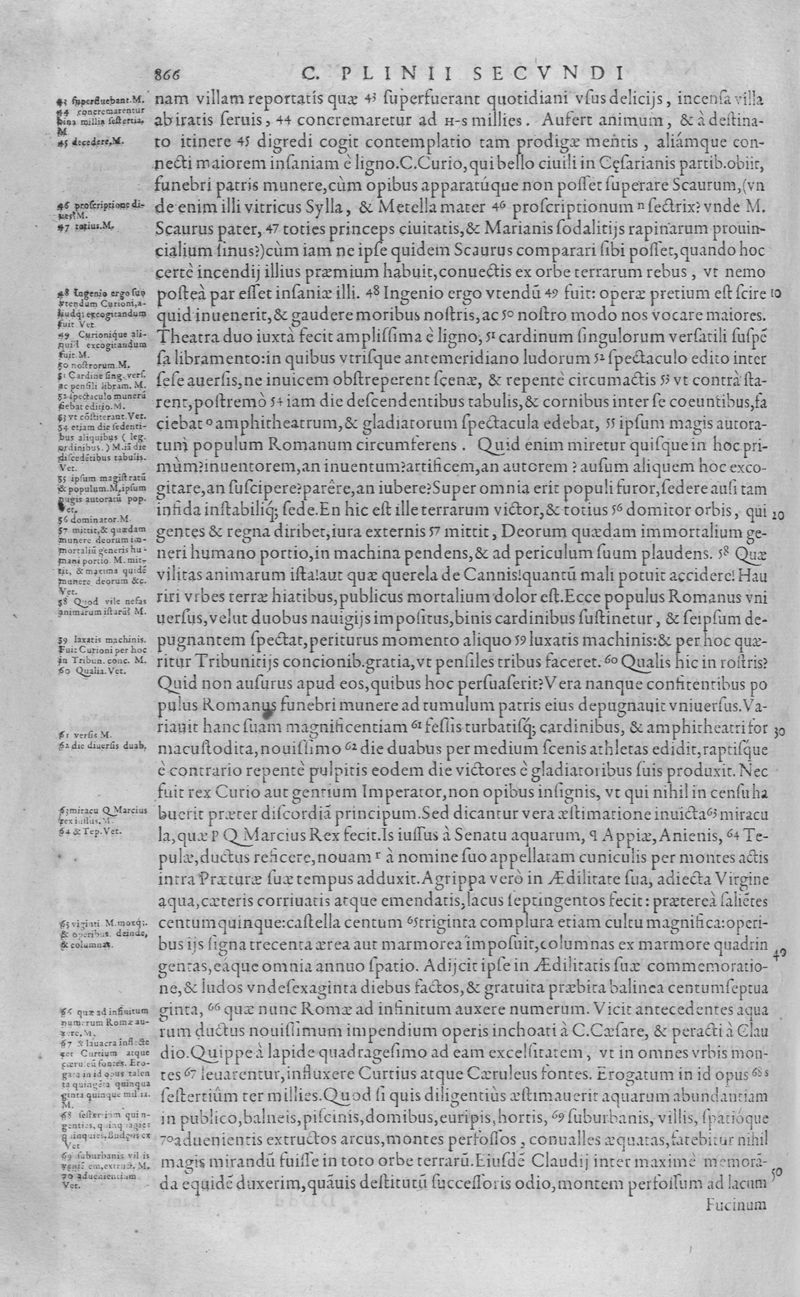 866
C. PLINII SECVNDI
nam villam reportatis quæ 43 ſuperfuerant quotidiani vſus delicijs, incenſa villa
ab iratis ſeruis, 44 concremaretur ad H-s millies. Aufert animum, & à deſtina-
to itinere 45 digredi cogit contemplatio tam prodigæ mentis, aliámque con-
necti maiorem inſaniam è ligno. C. Curio, qui bello ciuili in Cęſarianis partib. obiit,
funebri patris munere, cùm opibus apparatúque non poſſet ſuperare Scaurum, (vn
de enim illi vitricus Sylla, & Metella mater 46 proſcriptionum n ſectrix? vnde M.
Scaurus pater, 47 toties princeps ciuitatis, & Marianis ſodalitijs rapinarum prouin-
cialium ſinus?) cùm iam ne ipſe quidem Scaurus comparari ſibi poſſet, quando hoc
certè incendij illius præmium habuit, conuectis ex orbe terrarum rebus, vt nemo
poſteà par eſſet inſaniæ illi. 48 Ingenio ergo vtendū 49 fuit: operæ pretium eſt ſcire 10
quid inuenerit, & gaudere moribus noſtris, ac 50 noſtro modo nos vocare maiores.
Theatra duo iuxtà fecit ampliſſima è ligno, 51 cardinum ſingulorum verſatili ſuſpē
ſa libramento: in quibus vtriſque antemeridiano ludorum 52 ſpectaculo edito inter
ſeſe auerſis, ne inuicem obſtreperent ſcenæ, & repentè circumactis 53 vt contrà ſta-
rent, poſtremò 54 iam die deſcendentibus tabulis, & cornibus inter ſe coeuntibus, fa
ciebat o amphitheatrum, & gladiatorum ſpectacula edebat, 55 ipſum magis autora-
tum populum Romanum circumferens. Quid enim miretur quiſque in hoc pri-
mùm? inuentorem, an inuentum? artificem, an autorem? auſum aliquem hoc exco-
gitare, an ſuſcipere? parêre, an iubere? Super omnia erit populi furor, ſedere auſi tam
infida inſtabiliq; ſede. En hic eſt ille terrarum victor, & totius 56 domitor orbis, qui 20
gentes & regna diribet, iura externis 57 mittit, Deorum quædam immortalium ge-
neri humano portio, in machina pendens, & ad periculum ſuum plaudens. 58 Quæ
vilitas animarum iſta! aut quæ querela de Cannis! quantū mali potuit accidere! Hau
riri vrbes terræ hiatibus, publicus mortalium dolor eſt. Ecce populus Romanus vni
uerſus, velut duobus nauigijs impoſitus, binis cardinibus ſuſtinetur, & ſeipſum de-
pugnantem ſpectat, periturus momento aliquo 59 luxatis machinis: & per hoc quæ-
ritur Tribunitijs concionib. gratia, vt penſiles tribus faceret. 60 Qualis hic in roſtris?
Quid non auſurus apud eos, quibus hoc perſuaſerit? Vera nanque confitentibus po
pulus Romanus funebri munere ad tumulum patris eius depugnauit vniuerſus. Va-
riauit hanc ſuam magnificentiam 61 feſſis turbatiſq; cardinibus, & amphitheatri for 30
ma cuſtodita, nouiſſimo 62 die duabus per medium ſcenis athletas edidit, raptiſque
è contrario repentè pulpitis eodem die victores è gladiatoribus ſuis produxit. Nec
fuit rex Curio aut gentium Imperator, non opibus inſignis, vt qui nihil in cenſu ha
buerit præter diſcordiā principum. Sed dicantur vera æſtimatione inuicta 63 miracu
la, quæ p Q Marcius Rex fecit. Is iuſſus à Senatu aquarum, q Appiæ, Anienis, 64 Te-
pulæ, ductus reficere, nouam r à nomine ſuo appellatam cuniculis per montes actis
intra Præturæ ſuæ tempus adduxit. Agrippa verò in Ædilitate ſua, adiecta Virgine
aqua, cæteris corriuatis atque emendatis, lacus ſeptingentos fecit: præterea ſaliētes
centumquinque: caſtella centum 65 triginta complura etiam cultu magnifica: operi-
bus ijs ſigna trecenta ærea aut marmorea impoſuit, columnas ex marmore quadrin 40
gentas, eáque omnia annuo ſpatio. Adijcit ipſe in Ædilitatis ſuæ commemoratio-
ne, & ludos vndeſexaginta diebus factos, & gratuita præbita balinea centumſeptua
ginta, 66 quæ nunc Romæ ad infinitum auxere numerum. Vicit antecedentes aqua
rum ductus nouiſſimum impendium operis inchoati à C. Cæſare, & peracti à Clau
dio. Quippe à lapide quadrageſimo ad eam excelſitatem, vt in omnes vrbis mon-
tes 67 leuarentur, influxere Curtius atque Cæruleus fontes. Erogatum in id opus 68 s
ſeſtertiûm ter millies. Quod ſi quis diligentiùs æſtimauerit aquarum abundantiam
in publico, balneis, piſcinis, domibus, euripis, hortis, 69 ſuburbanis, villis, ſpatióque
70 aduenientis extructos arcus, montes perfoſſos, conualles æquatas, fatebitur nihil
magis mirandū fuiſſe in toto orbe terrarū. Eiuſdē Claudij inter maximè memorā-
da equidē duxerim, quāuis deſtitutū ſucceſſoris odio, montem perfoſſum ad lacum 50
Fucinum
43 ſuperfluebant. M.
44 concremarentur
bina millia ſeſtertia,
M.
45 decedere, M.
46 proſcriptione di-
ues? M.
47 totius. M.
48 Ingenio ergo ſuo
vtendum Curioni, a-
liudq; excogitandum
fuit Vet.
49 Curionique ali-
quid excogitandum
fuit. M.
50 noſtrorum. M.
51 Cardine ſing. verſ.
ac penſili libram. M.
52 ſpectaculo munerū
fiebat editio. M.
53 vt cōſtiterant. Vet.
54 etiam die ſedenti-
bus aliquibus (leg.
ordinibus.) M. iā die
diſcedētibus tabulis.
Vet.
55 ipſum magiſtratū
& populum. M. ipſum
magis autoratū pop.
Vet.
56 dominator. M.
57 mittit, & quædam
munere deorum im-
mortaliū generis hu-
mani portio M. mit-
tit, & maxima quidē
munere deorum &c.
Vet.
58 Quod vile nefas
animarum iſtarū! M.
59 laxatis machinis.
Fuit Curioni per hoc
in Tribun. conc. M.
60 Qualia. Vet.
61 verſis M.
62 die diuerſis duab.
63 miracu Q Marcius
rex iuſſus. M
64 & Tep. Vet.
65 viginti M. moxq;.
& operibus. deinde,
& columnas.
66 quæ ad infinitum
numerum Romæ au-
xere, M.
69 ſuburbanis vil is
70 aduenientium
Vet.